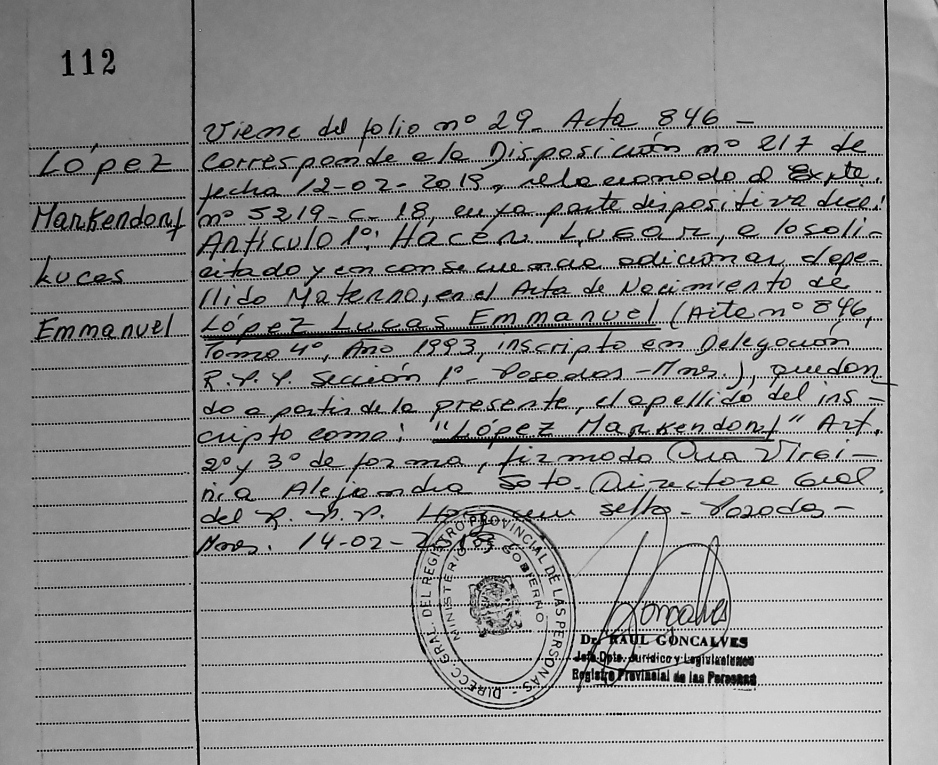 112
López
Markendorf
Lucas
Emmanuel
Viene del folio nº 29. Acta 846 -
corresponde a la Disposición nº 217 de
fecha 12-02-2019, relacionado al Expte.
nº 5219-C-18, cuya parte dispositiva dice:
Artículo 1º: HACER LUGAR, a lo soli-
citado y en consecuencia adicionar el ape-
llido Materno, en el Acta de Nacimiento de
López Lucas Emmanuel (Acta nº 846,
Tomo 4º, Año 1993, inscripto en Delegación
R.P.P. Sección 1º - Posadas - Mnes.), quedan-
do a partir de la presente, el apellido del ins-
cripto como: "López Markendorf" Art.
2º y 3º de forma, firmado Dra Virgi-
nia Alejandra Soto. Directora Gral.
del R.P.P. Hay un sello - Posadas -
Mnes. 14-02-
DIRECC. GRAL. DEL REGISTRO PROVINCIAL DE LAS PERSONAS
MINISTERIO DE GOBIERNO
Goncalves
Dr. RAUL GONCALVES
Jefe Dpto. Jurídico y Legislaciones
Registro Provincial de las Personas